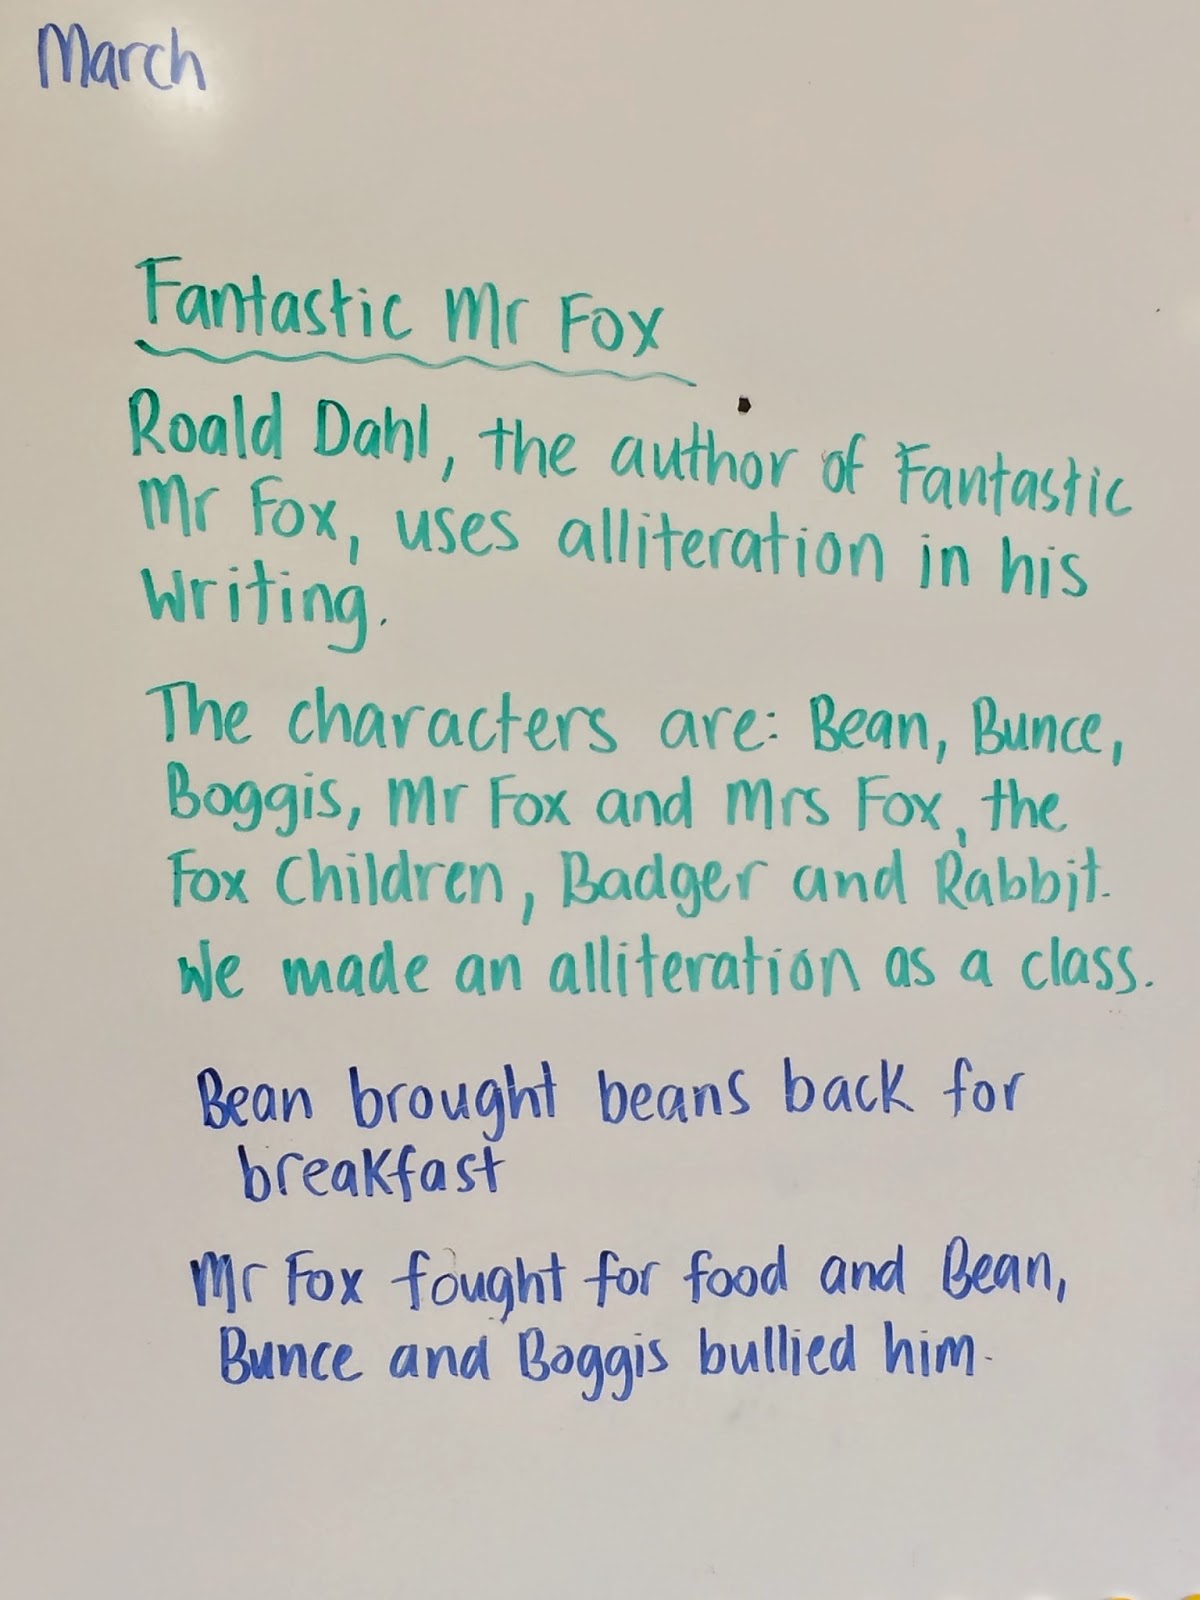 March
Fantastic Mr Fox
Roald Dahl, the author of Fantastic
Mr Fox, uses alliteration in his
Writing.
The characters are: Bean, Bunce,
Boggis, Mr Fox and Mrs Fox, the
Fox Children, Badger and Rabbit.
We made an alliteration as a class.
Bean brought beans back for
breakfast
Mr Fox fought for food and Bean,
Bunce and Boggis bullied him.